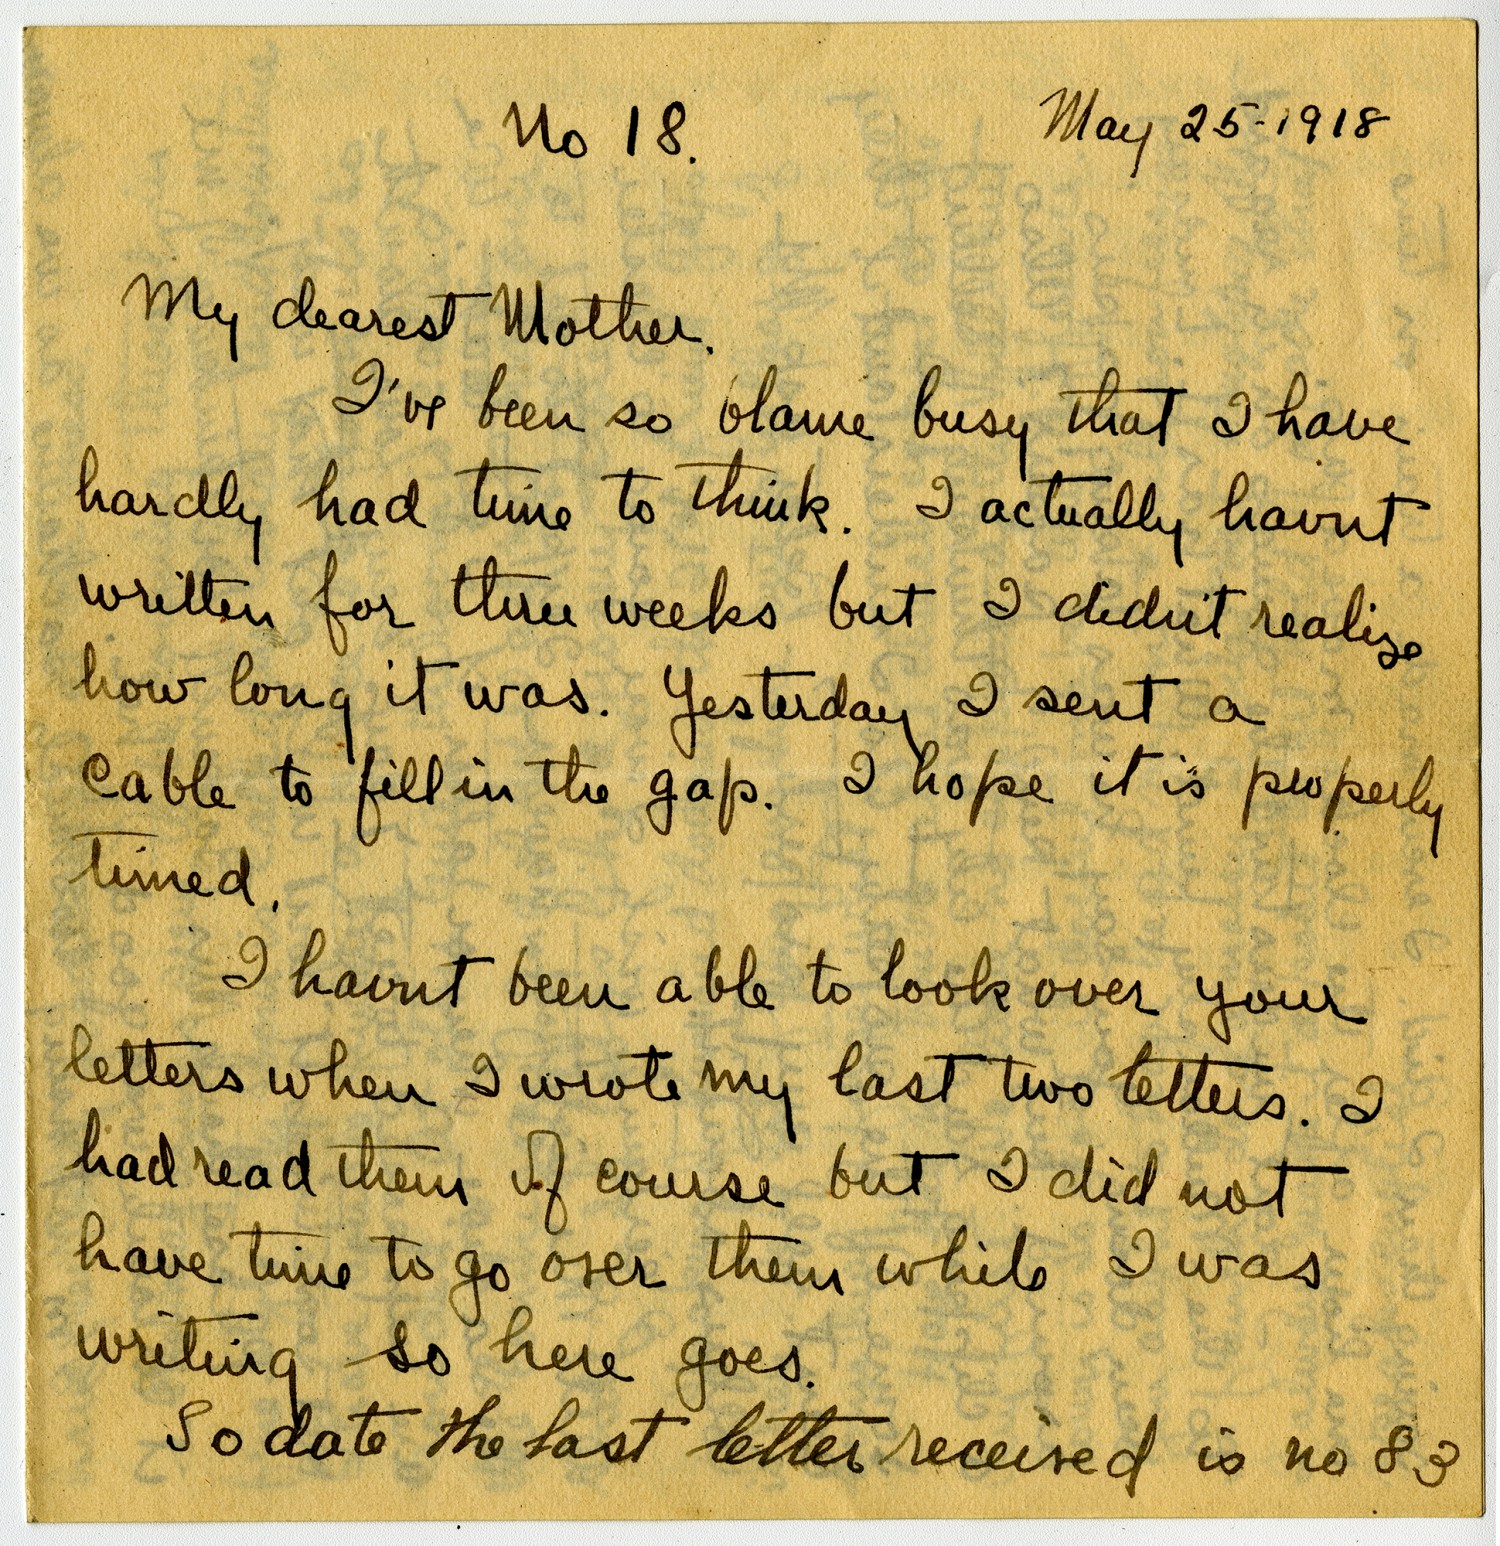 No 18. May 25-1918
My dearest Mother.
I've been so blame busy that I have
hardly had time to think. I actually havn't
written for three weeks but I didn't realize
how long it was. Yesterday I sent a
cable to fill in the gap. I hope it is properly
timed.
I havn't been able to look over your
letters when I wrote my last two letters. I
had read them of course but I did not
have time to go over them while I was
writing so here goes.
So date the last letter received is no 83